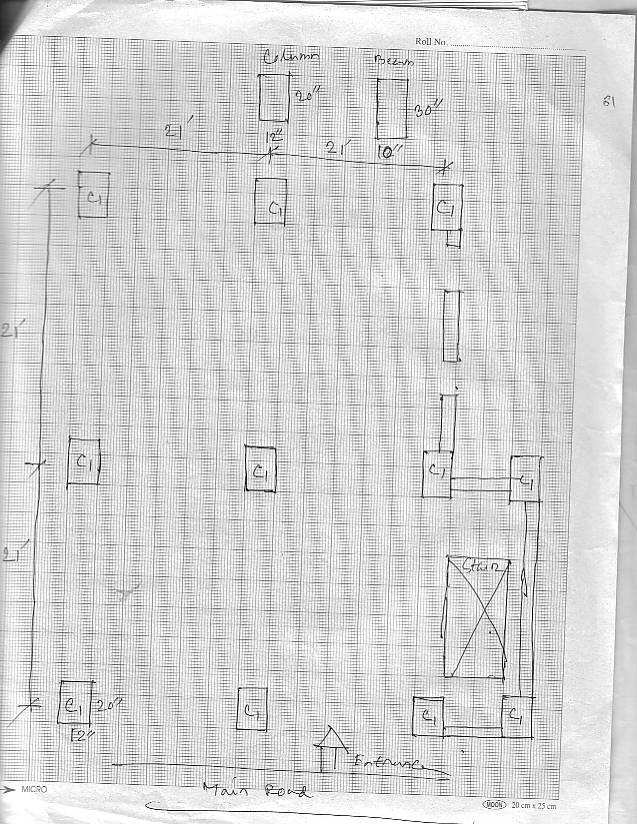 Roll No.
Column
Beam
20"
30"
61
12"
10"
21'
21'
C1
C1
C1
21'
C1
C1
C1
C1
21'
Stair
C1
20"
12"
C1
C1
C1
Entrance
Main Road
MICRO
MOON 20 cm x 25 cm